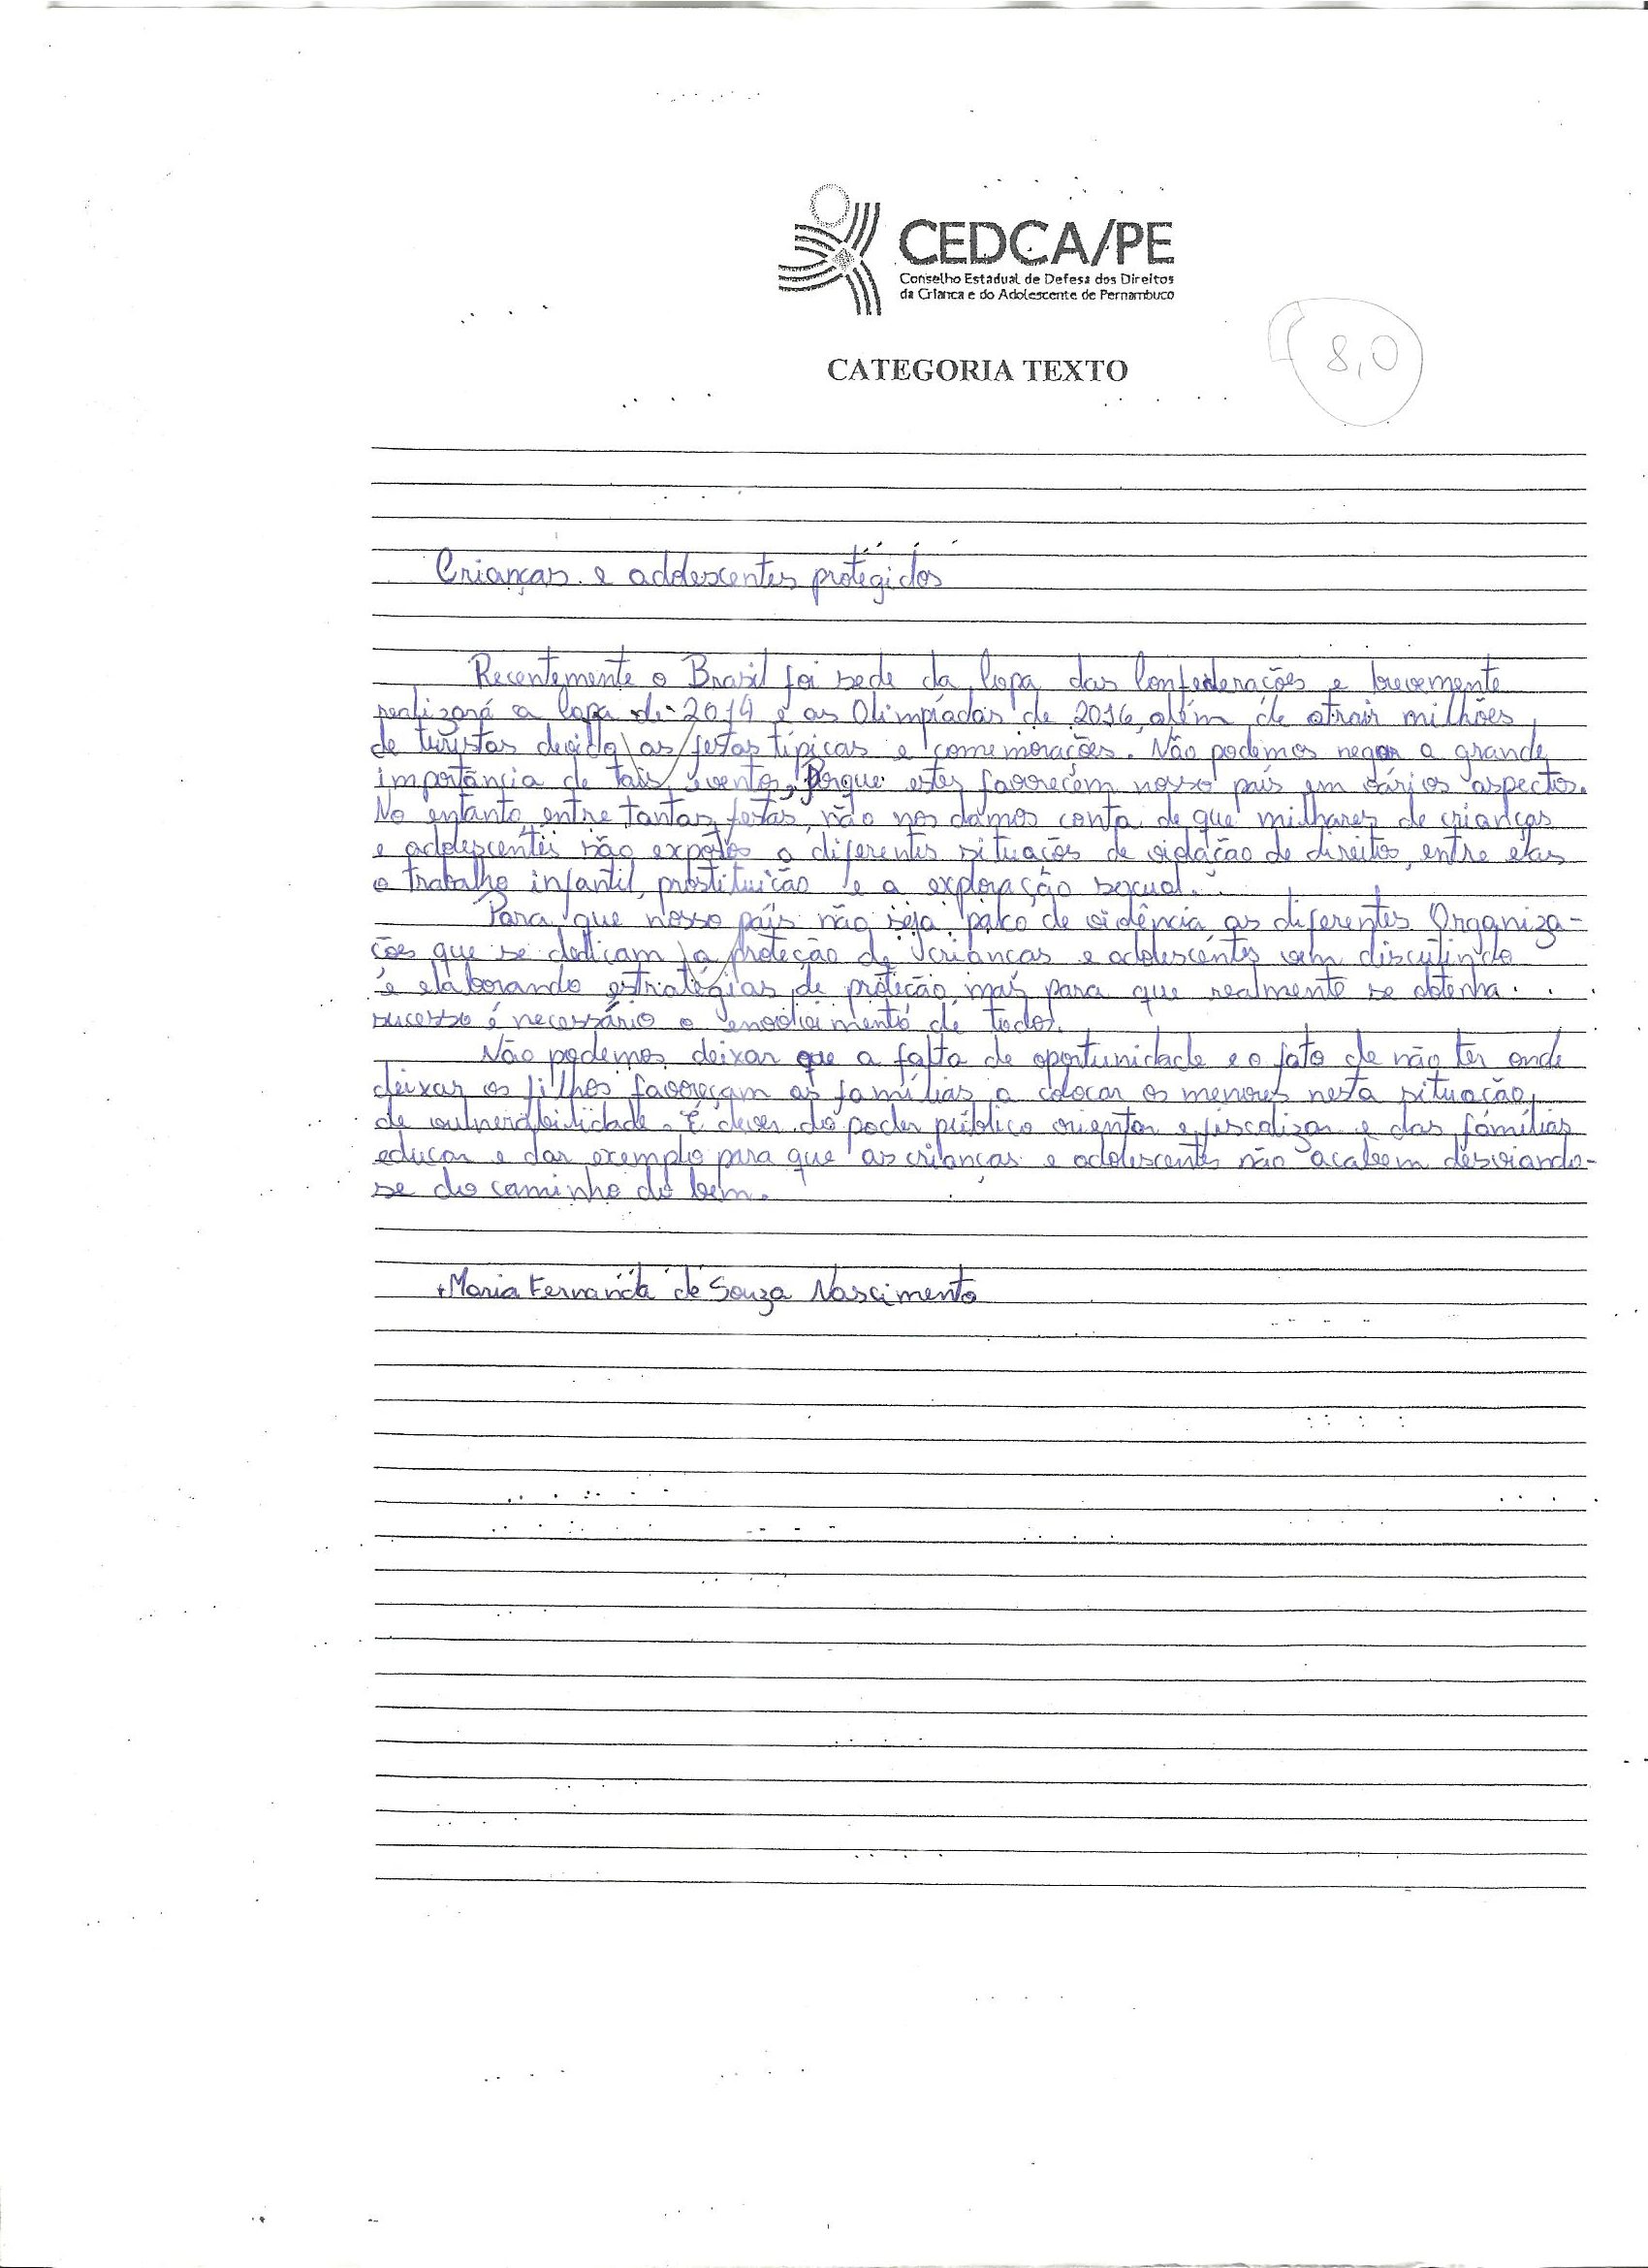 CEDCA/PE
Conselho Estadual de Defesa dos Direitos
da Criança e do Adolescente de Pernambuco
8,0
CATEGORIA TEXTO
Crianças e adolescentes protegidos
Recentemente o Brasil foi sede da Copa das Confederações e brevemente
realizará a Copa de 2014 e as Olimpíadas de 2016, além de atrair milhões
de turistas devido as festas típicas e comemorações. Não podemos negar a grande
importância de tais eventos, porque estes favorecem nosso país em vários aspectos.
No entanto, entre tantas festas, não nos damos conta de que milhares de crianças
e adolescentes são expostos a diferentes situações de violação de direitos, entre elas
o trabalho infantil, prostituição e a exploração sexual.
Para que nosso país não seja palco de violência as diferentes Organiza-
ções que se dedicam a proteção de crianças e adolescentes vem discutindo
e elaborando estratégias de proteção, mas para que realmente se obtenha
sucesso é necessário o envolvimento de todos.
Não podemos deixar que a falta de oportunidade e o fato de não ter onde
deixar os filhos favoreçam as famílias a colocar os menores nesta situação
de vulnerabilidade. É dever do poder público orientar e fiscalizar e das famílias
educar e dar exemplo para que as crianças e adolescentes não acabem desviando-
se do caminho do bem.
Maria Fernanda de Souza Nascimento